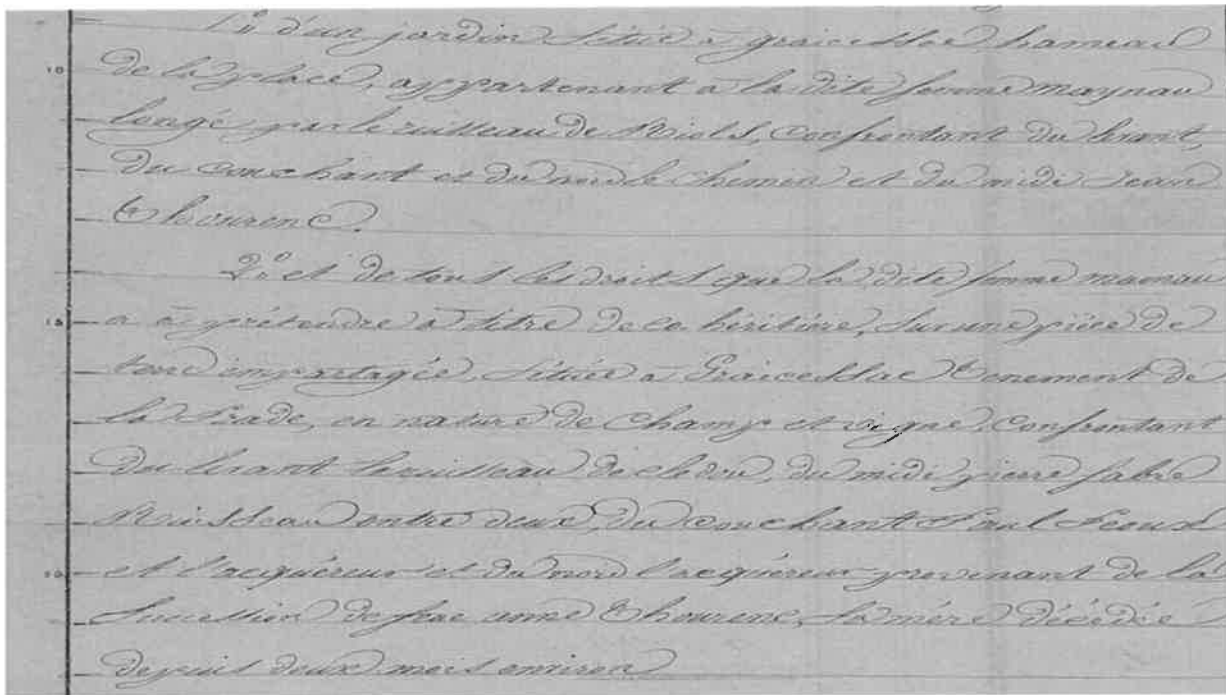 1º d'un jardin située à graicessac hameau
10
de la place, appartenant à la dite femme maynau
longé par le ruisseau de Riols, confrontant du levant,
du couchant et du nord le chemin et du midi Jean
Thourenc.
2º et de tous les droits que la dite femme maynau
15
a à prétendre à titre de co héritière, sur une pièce de
terre impartagée, située à Graicessac tenement de
la Prade, en nature de champ et vigne, confrontant
du levant le ruisseau de cledou, du midi pierre fabre
Ruisseau entre deux, du couchant Paul
20
et l'acquéreur et du nord l'acquéreur provenant de la
Succession de feue anne Thourenc, sa mère décédée
depuis deux mois environ